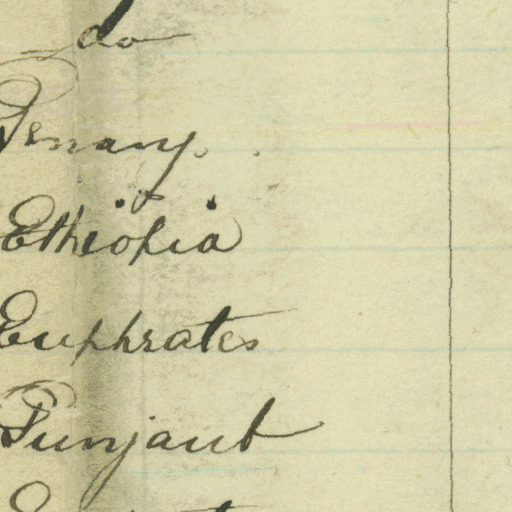 do
Penang.
Ethiopia
Euphrates
Punjaub